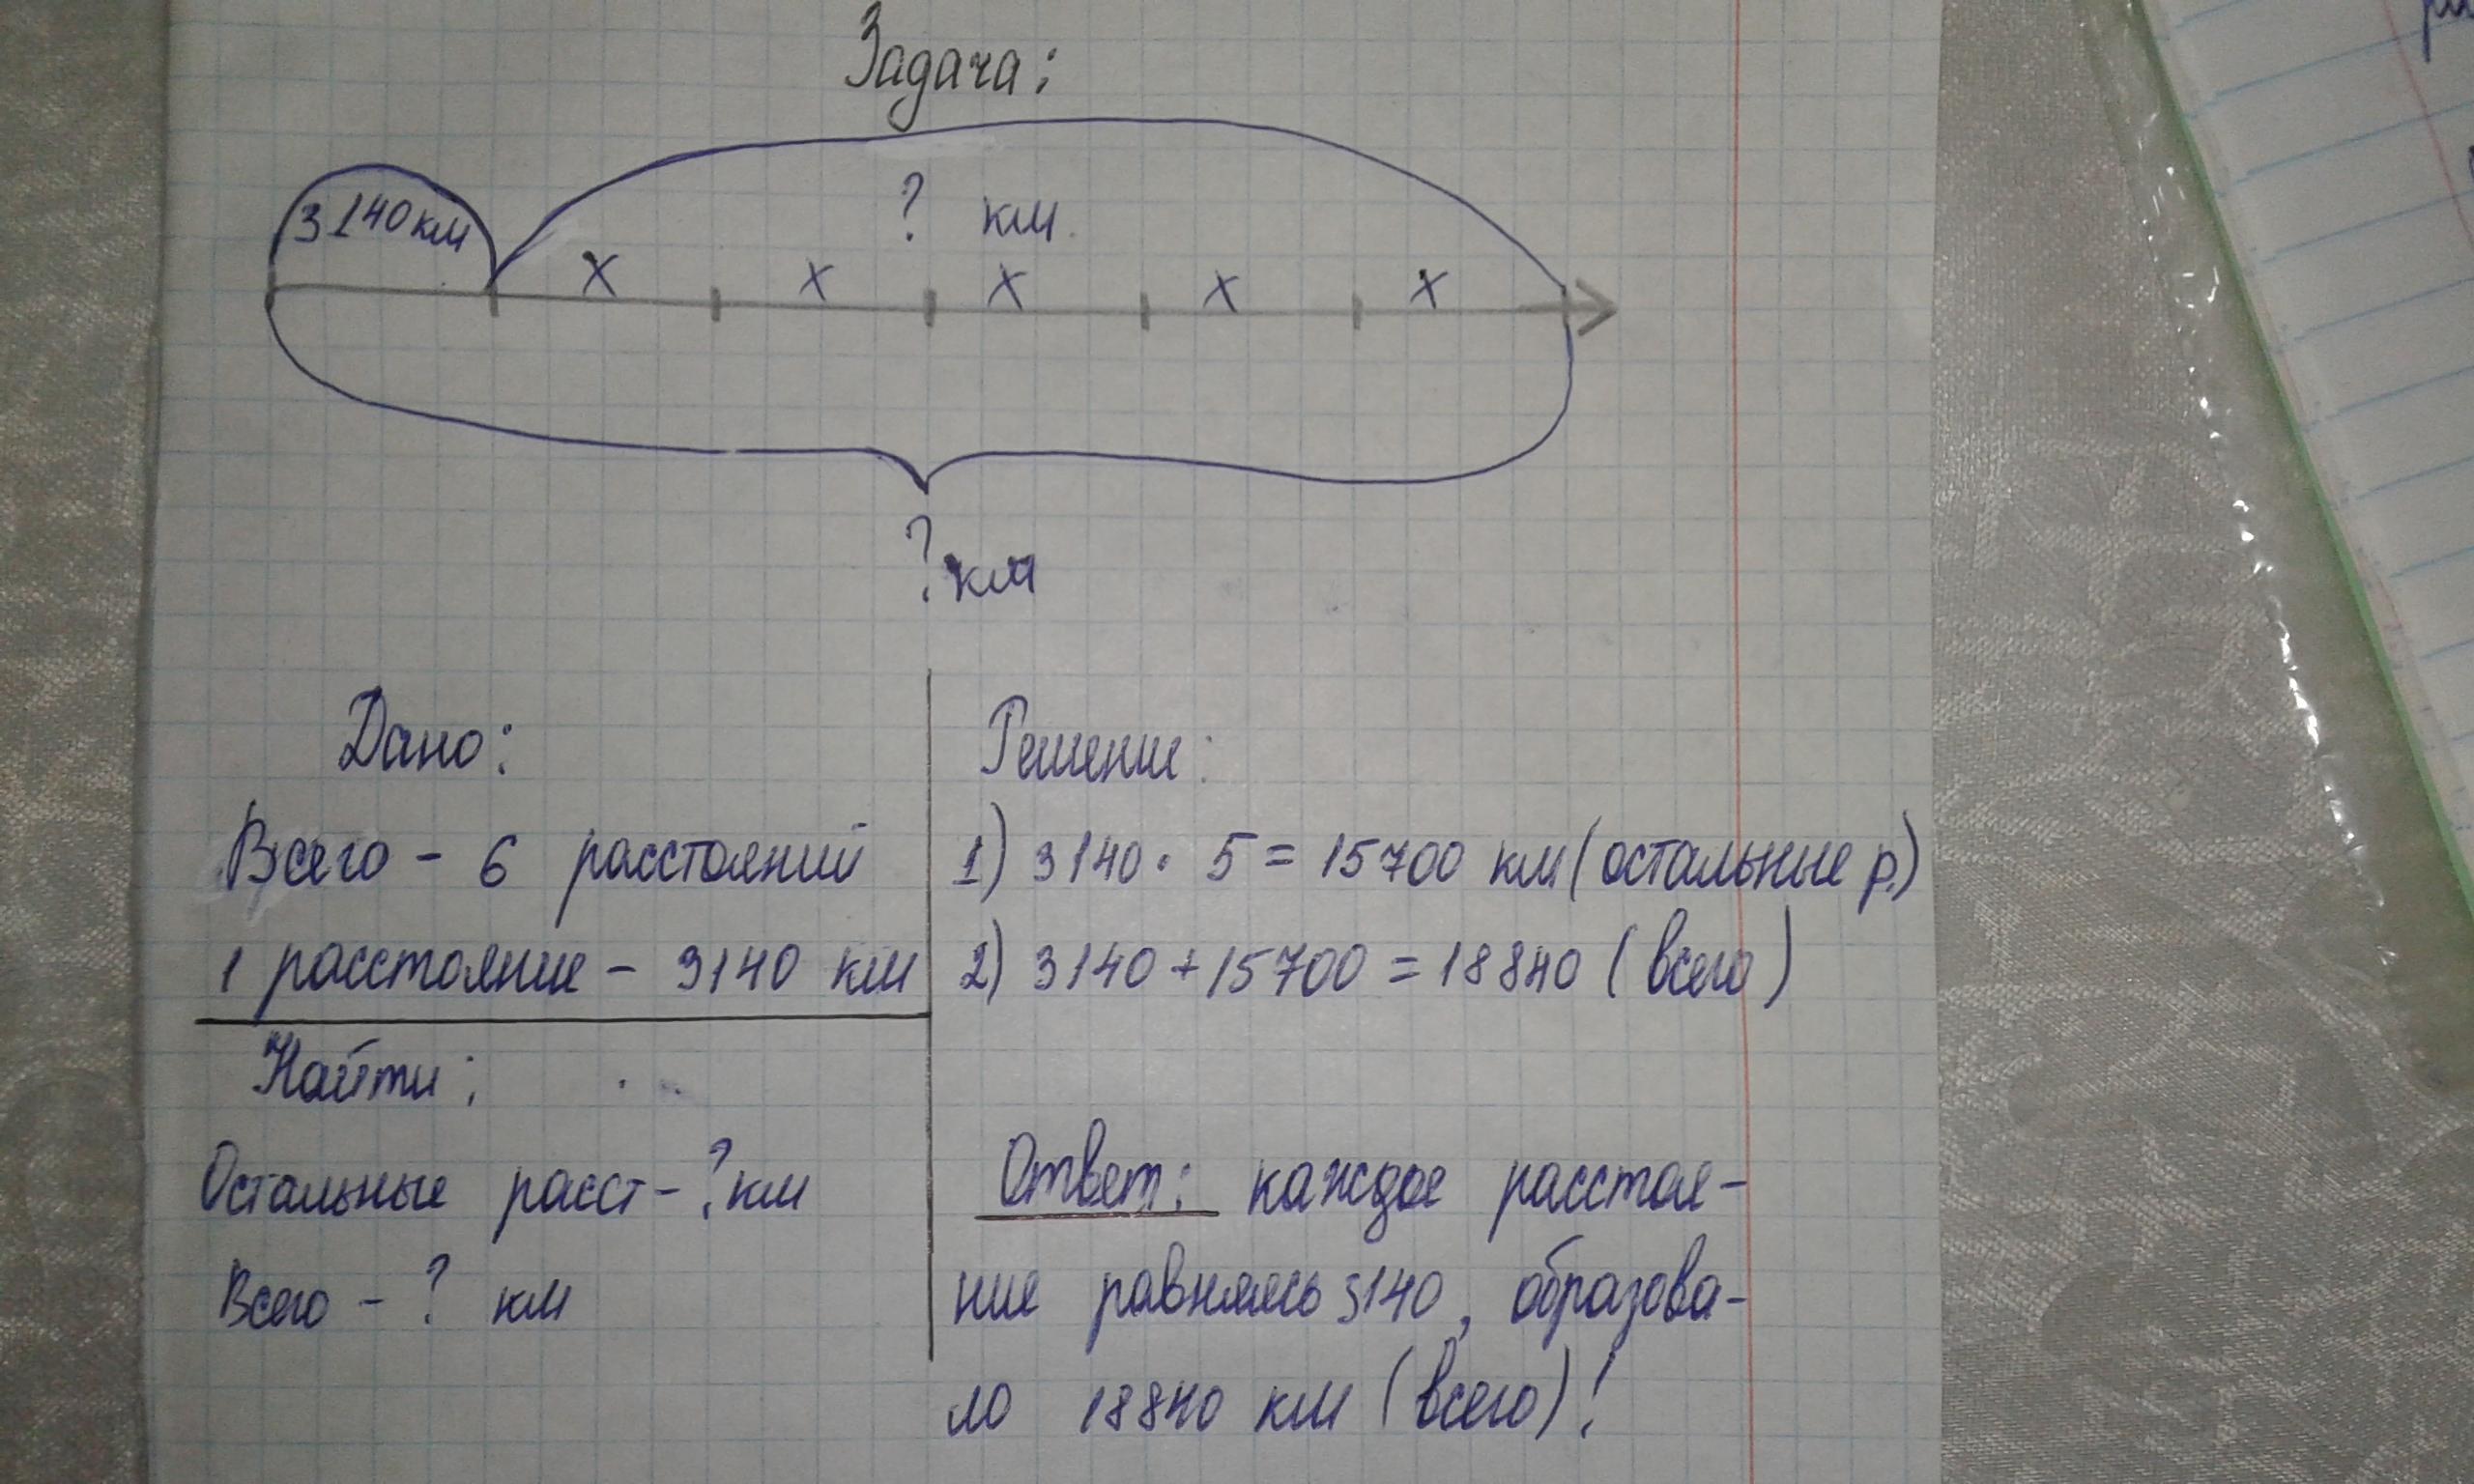 Задача:
3140 км
? км
х х х х х
? км
Дано:
Всего - 6 расстояний
1 расстояние - 3140 км
Найти:
Остальные расст - ? км
Всего - ? км
Решение:
1) 3140 · 5 = 15700 км (остальные р.)
2) 3140 + 15700 = 18840 (всего)
Ответ: каждое расстоя-
ние равняясь 3140, образова-
ло 18840 км (всего)!